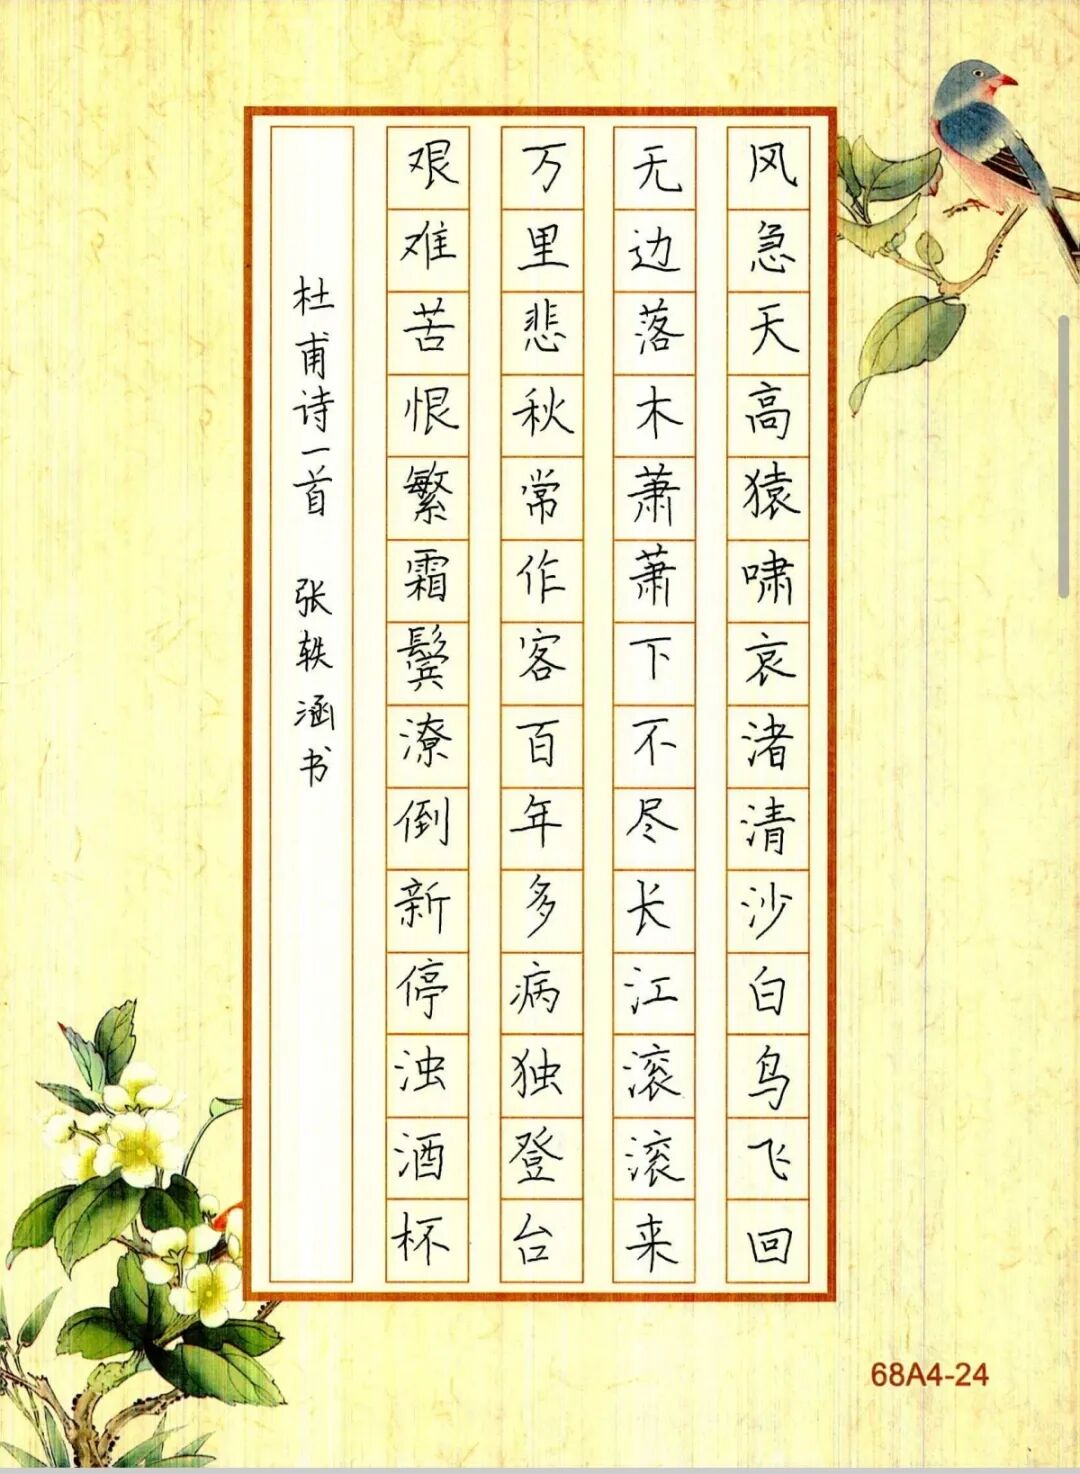 风急天高猿啸哀渚清沙白鸟飞回
无边落木萧萧下不尽长江滚滚来
万里悲秋常作客百年多病独登台
艰难苦恨繁霜鬓潦倒新停浊酒杯
杜甫诗一首 张轶涵书
68A4-24